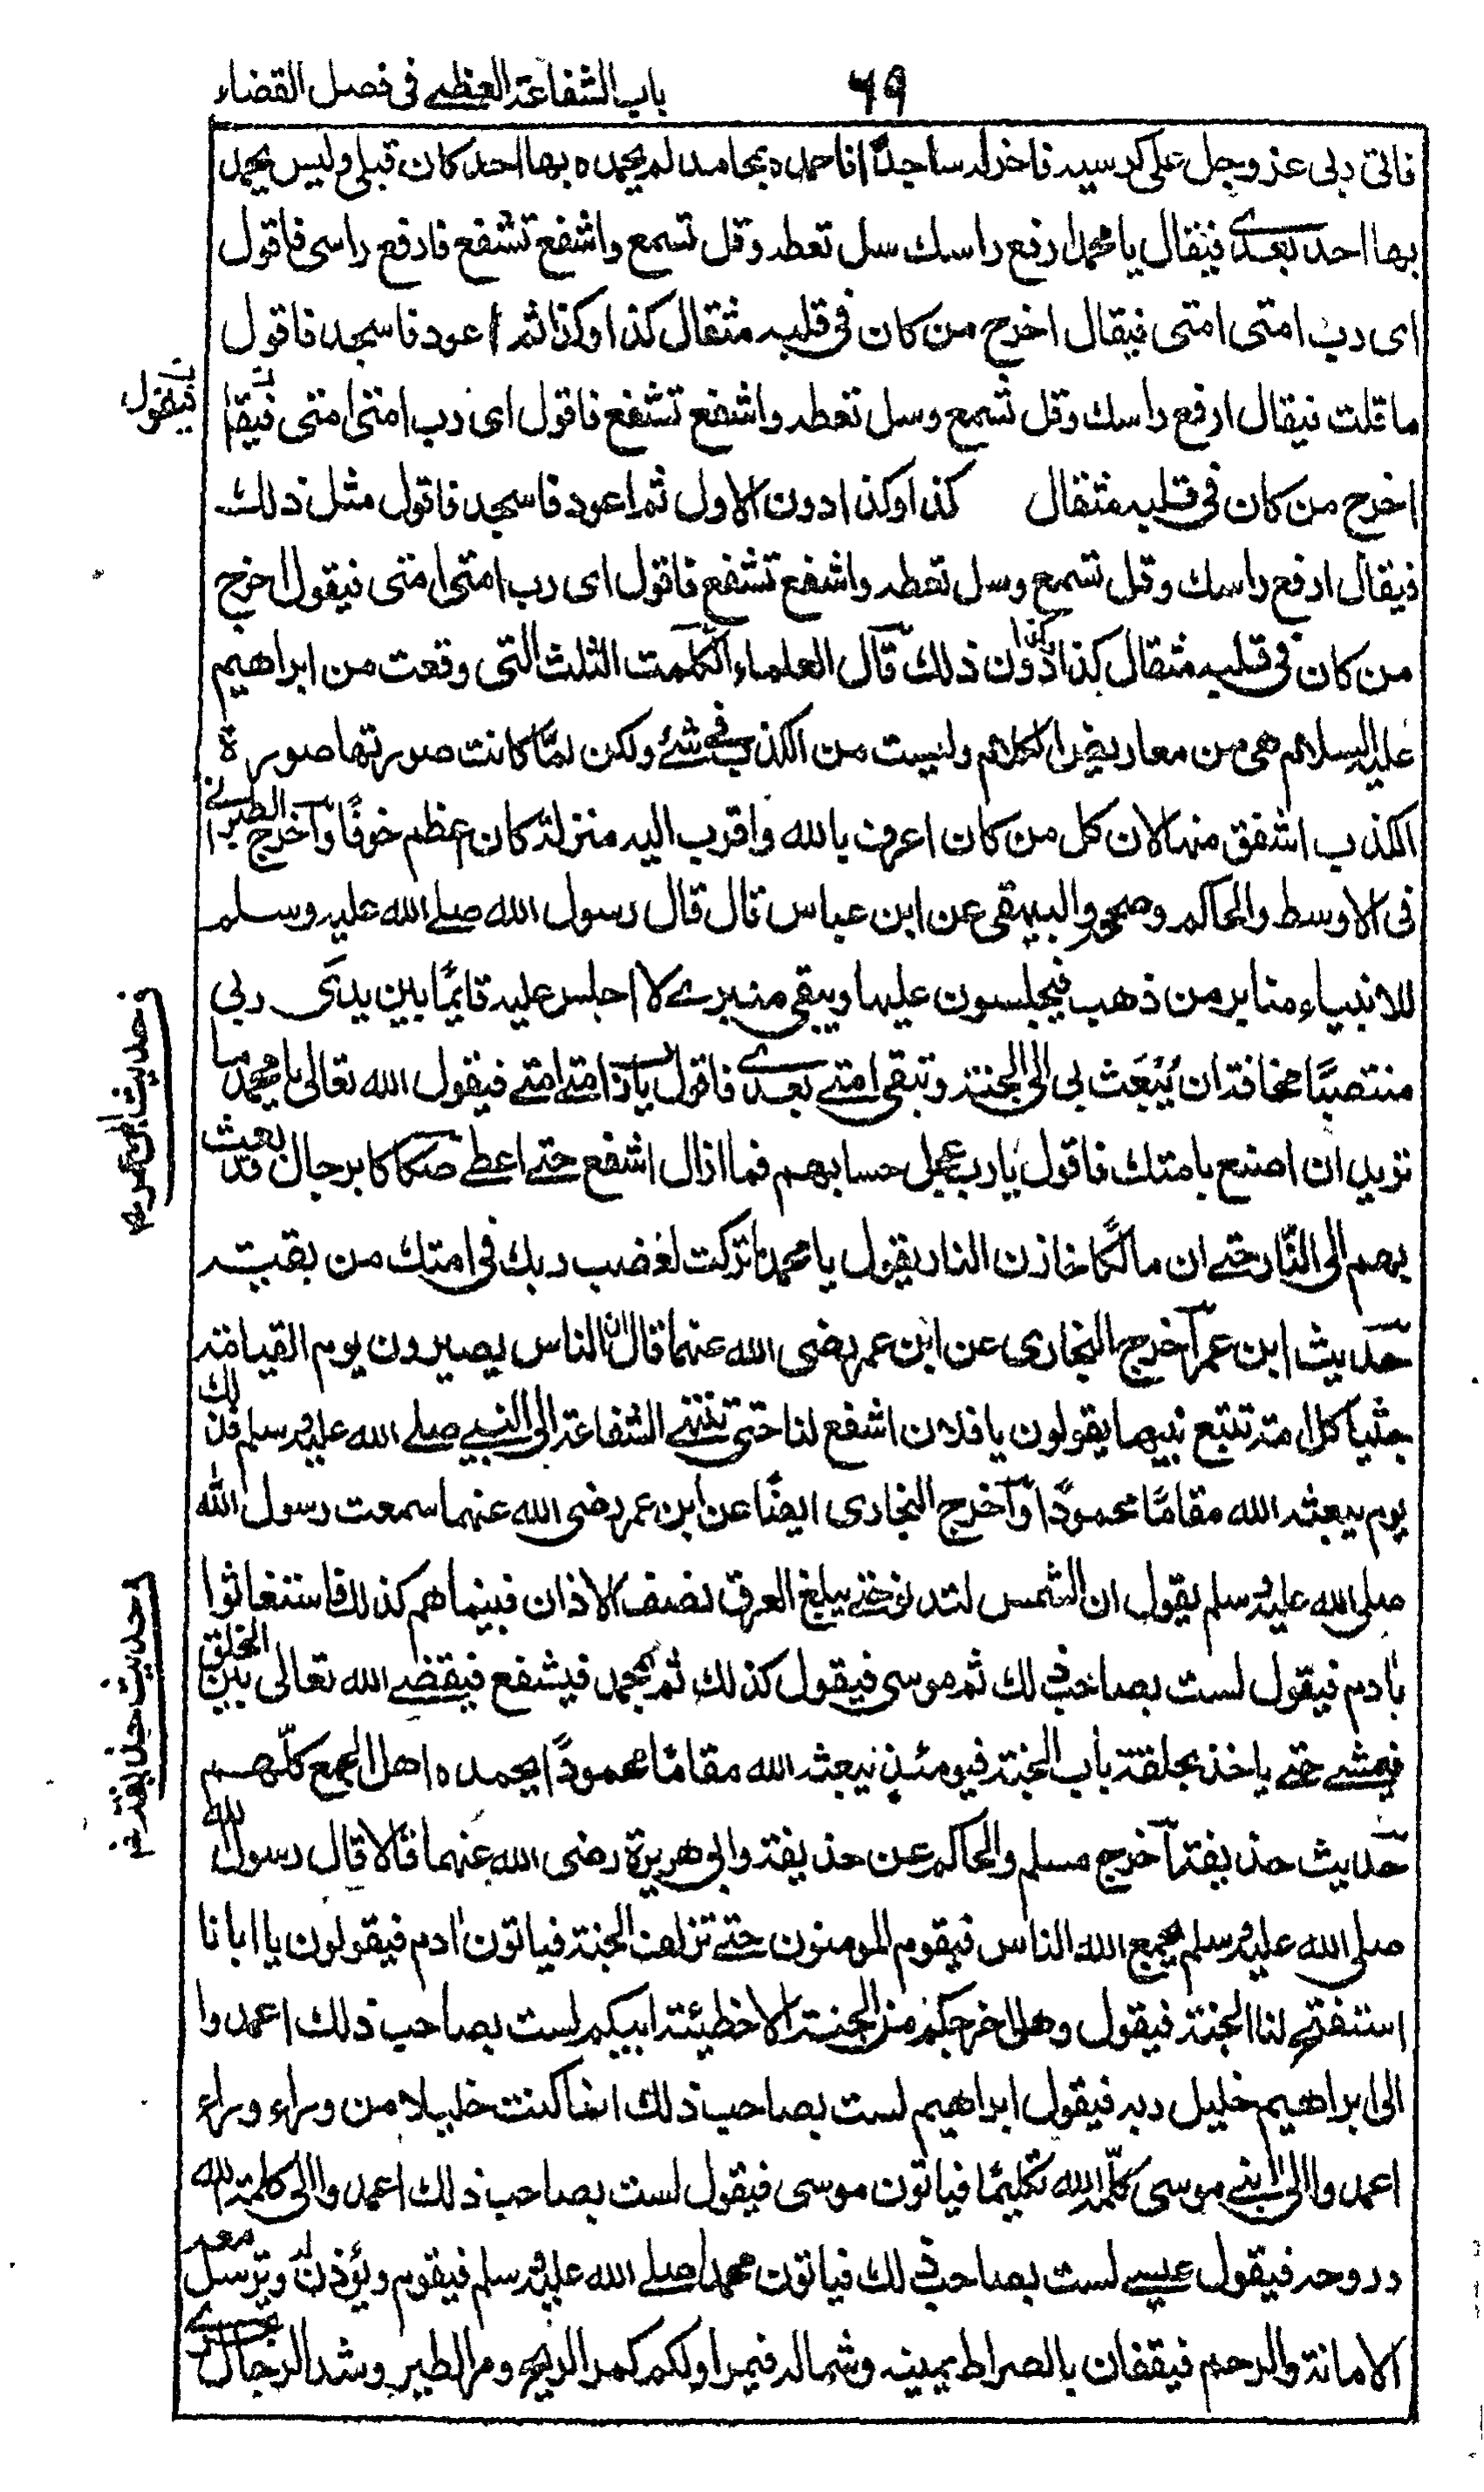 باب الشفاعة العظمے فى فصل القضاء
٦٩
فاتى ربى عز وجل على كرسيه فاخر له ساجدًا فاحمده بمحامد لم يحمده بها احد كان قبلى وليس يحمده
بها احد بعدے فيقال يا محمد ارفع راسك سل تعطه وقل تسمع واشفع تشفع فارفع راسى فاقول
اى رب امتى امتى فيقال اخرج من كان فى قلبه مثقال كذا وكذا ثم اعود فاسجد فاقول
ما قلت فيقال ارفع راسك وقل تسمع وسل تعطه واشفع تشفع فاقول اى رب امتى امتى فيقال
فيقول
اخرج من كان فى قلبه مثقال كذا وكذا دون الاول ثم اعود فاسجد فاقول مثل ذلك
فيقال ارفع راسك وقل تسمع وسل تعطه واشفع تشفع فاقول اى رب امتى امتى فيقول اخرج
من كان فى قلبه مثقال كذا وكذا دون ذلك قال العلماء الكلمت الثلث التى وقعت من ابراهيم
عليه السلام هى من معاريض الكلام وليست من الكذب فے شئ ولكن لمّا كانت صورتها صورة
الكذب اشفق منها لان كل من كان اعرف بالله واقرب اليه منزلة كان اعظم خوفًا وآخرج الطبرانے
فى الاوسط والحاكم وصححه والبيهقى عن ابن عباس قال قال رسول الله صلے الله عليه وسلم
للانبياء منابر من ذهب فيجلسون عليها ويبقى منبرے لا اجلس عليه قايمًا بين يدَى ربى
منتصبًا مخافة ان يُبْعَث بى الى الجنة وتبقى امتے بعدے فاقول يا رب امتے امتے فيقول الله تعالى يا محمد ما
تريد ان اصنع بامتك فاقول يا رب عجل حسابهم فما ازال اشفع حتے اعطے صكاكا برجال قد بعث
بهم الى النّار حتے ان مالكًا خازن النار يقول يا محمد ما تركت لغضب ربك فى امتك من بقية
حديث ابن عمر آخرج البخارى عن ابن عمر رضى الله عنهما قال ان الناس يصيرون يوم القيامة
حديث ابن عمر رض
جثيا كل امة تتبع نبيها يقولون يا فلان اشفع لنا حتى تنتهے الشفاعة الى النبے صلے الله عليه وسلم فذلك
يوم يبعثه الله مقامًا محمودًا وآخرج البخارى ايضًا عن ابن عمر رضى الله عنهما سمعت رسول الله
صلى الله عليه وسلم يقول ان الشمس لتدنو حتے يبلغ العرق نصف الاذان فبينما هم كذلك فاستغاثوا
بادم فيقول لست بصاحب ذلك ثم موسى فيقول كذلك ثم محمد فيشفع فيقضے الله تعالى بين الخلق
فيمشے حتے ياخذ بحلقة باب الجنة فيومئذ يبعثه الله مقامًا محمودًا يحمده اهل الجمع كلّهم
حديث حذيفة آخرج مسلم والحاكم عن حذيفة وابى هريرة رضى الله عنهما قالا قال رسول الله
حديث حذيفة رض
صلى الله عليه وسلم يجمع الله الناس فيقوم المومنون حتے تزلف الجنة فياتون ادم فيقولون يا ابانا
استفتح لنا الجنة فيقول وهل اخرجكم من الجنة الا خطيئة ابيكم لست بصاحب ذلك اعمدوا
الى ابراهيم خليل ربه فيقول ابراهيم لست بصاحب ذلك انما كنت خليلا من وراء وراء
اعمدوا الى ابنے موسى كلّمه الله تكليمًا فياتون موسى فيقول لست بصاحب ذلك اعمدوا الى كلمة الله
وروحه فيقول عيسے لست بصاحب ذلك فياتون محمدا صلے الله عليه وسلم فيقوم ويؤذن له وترسل معه
الامانة والرحم فيقفان بالصراط يمينه وشماله فيمر اولكم كمر الريح ومر الطير وشد الرجال تجرے